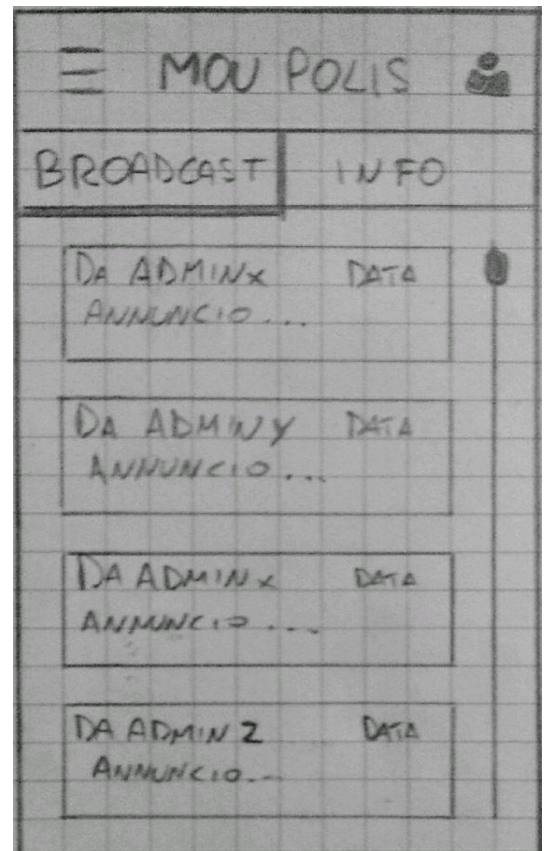 MOV POLIS
BROADCAST INFO
DA ADMINX DATA
ANNUNCIO...
DA ADMINY DATA
ANNUNCIO...
DA ADMINX DATA
ANNUNCIO...
DA ADMIN Z DATA
ANNUNCIO...